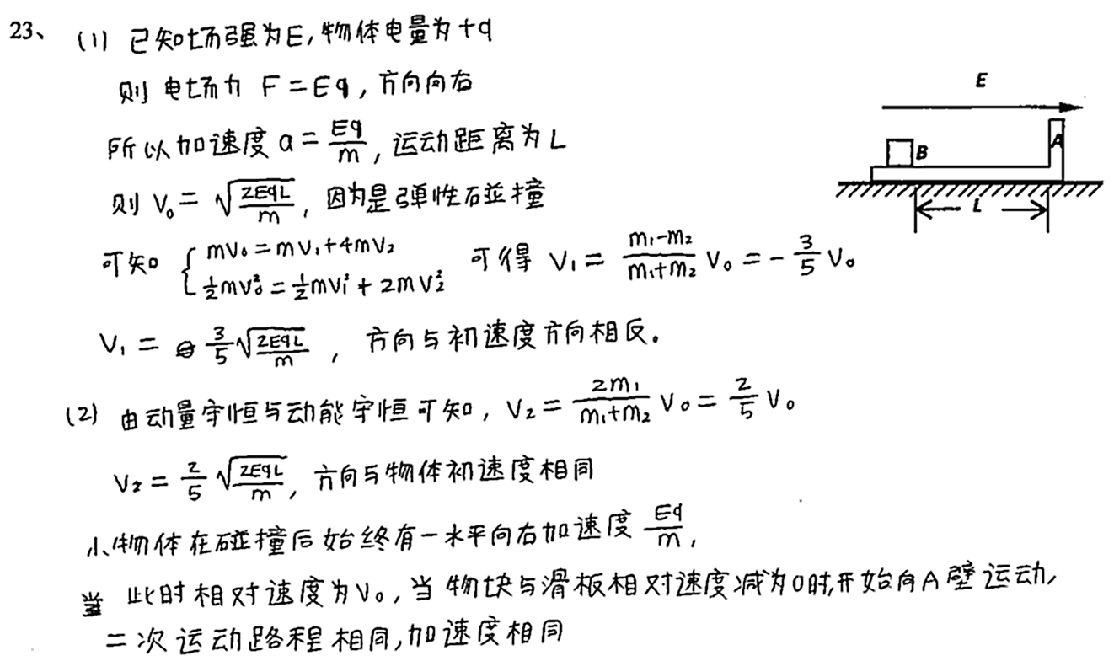 23、 (1) 已知场强为E,物体电量为+q
则电场力 F=Eq,方向向右
所以加速度 a=Eq/m,运动距离为L
则 V₀=√(2EqL/m),因为是弹性碰撞
可知 { mV₀=mV₁+4mV₂ 可得 V₁=(m₁-m₂)/(m₁+m₂) V₀=-3/5 V₀
½mV₀²=½mV₁²+2mV₂²
V₁= 3/5√(2EqL/m) , 方向与初速度方向相反.
(2) 由动量守恒与动能守恒可知, V₂=2m₁/(m₁+m₂) V₀=2/5 V₀
V₂=2/5√(2EqL/m),方向与物体初速度相同
小物体在碰撞后始终有一水平向右加速度 Eq/m,
此时相对速度为V₀,当物块与滑板相对速度减为0时,开始向A壁运动,
二次运动路程相同,加速度相同
E
B
A
L